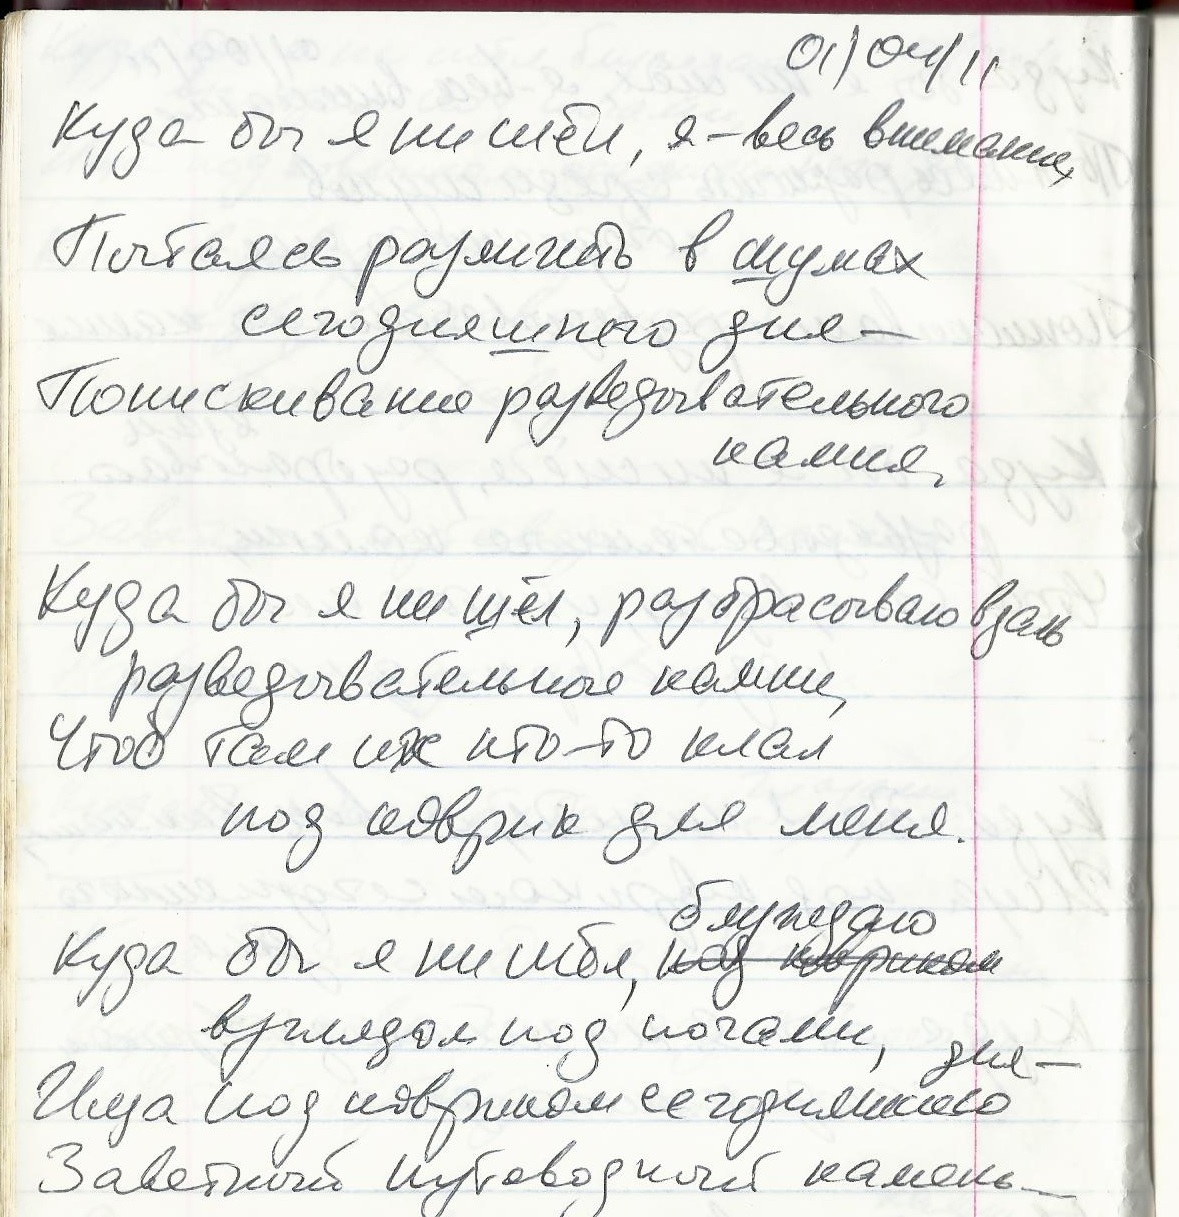 01/04/11
Куда бы я ни шёл, я – весь внимание,
Пытаясь различить в шумах
сегодняшнего дня –
Попискивание разведывательного
камня,
Куда бы я ни шёл, разбрасываю вдаль
разведывательные камни,
Чтоб там их кто-то клал
под коврик для меня.
блуждаю
Куда бы я ни шёл, под ковриком
взглядом под ногами,
дня –
Ища под ковриком сегодняшнего
Заветный путеводный камень –